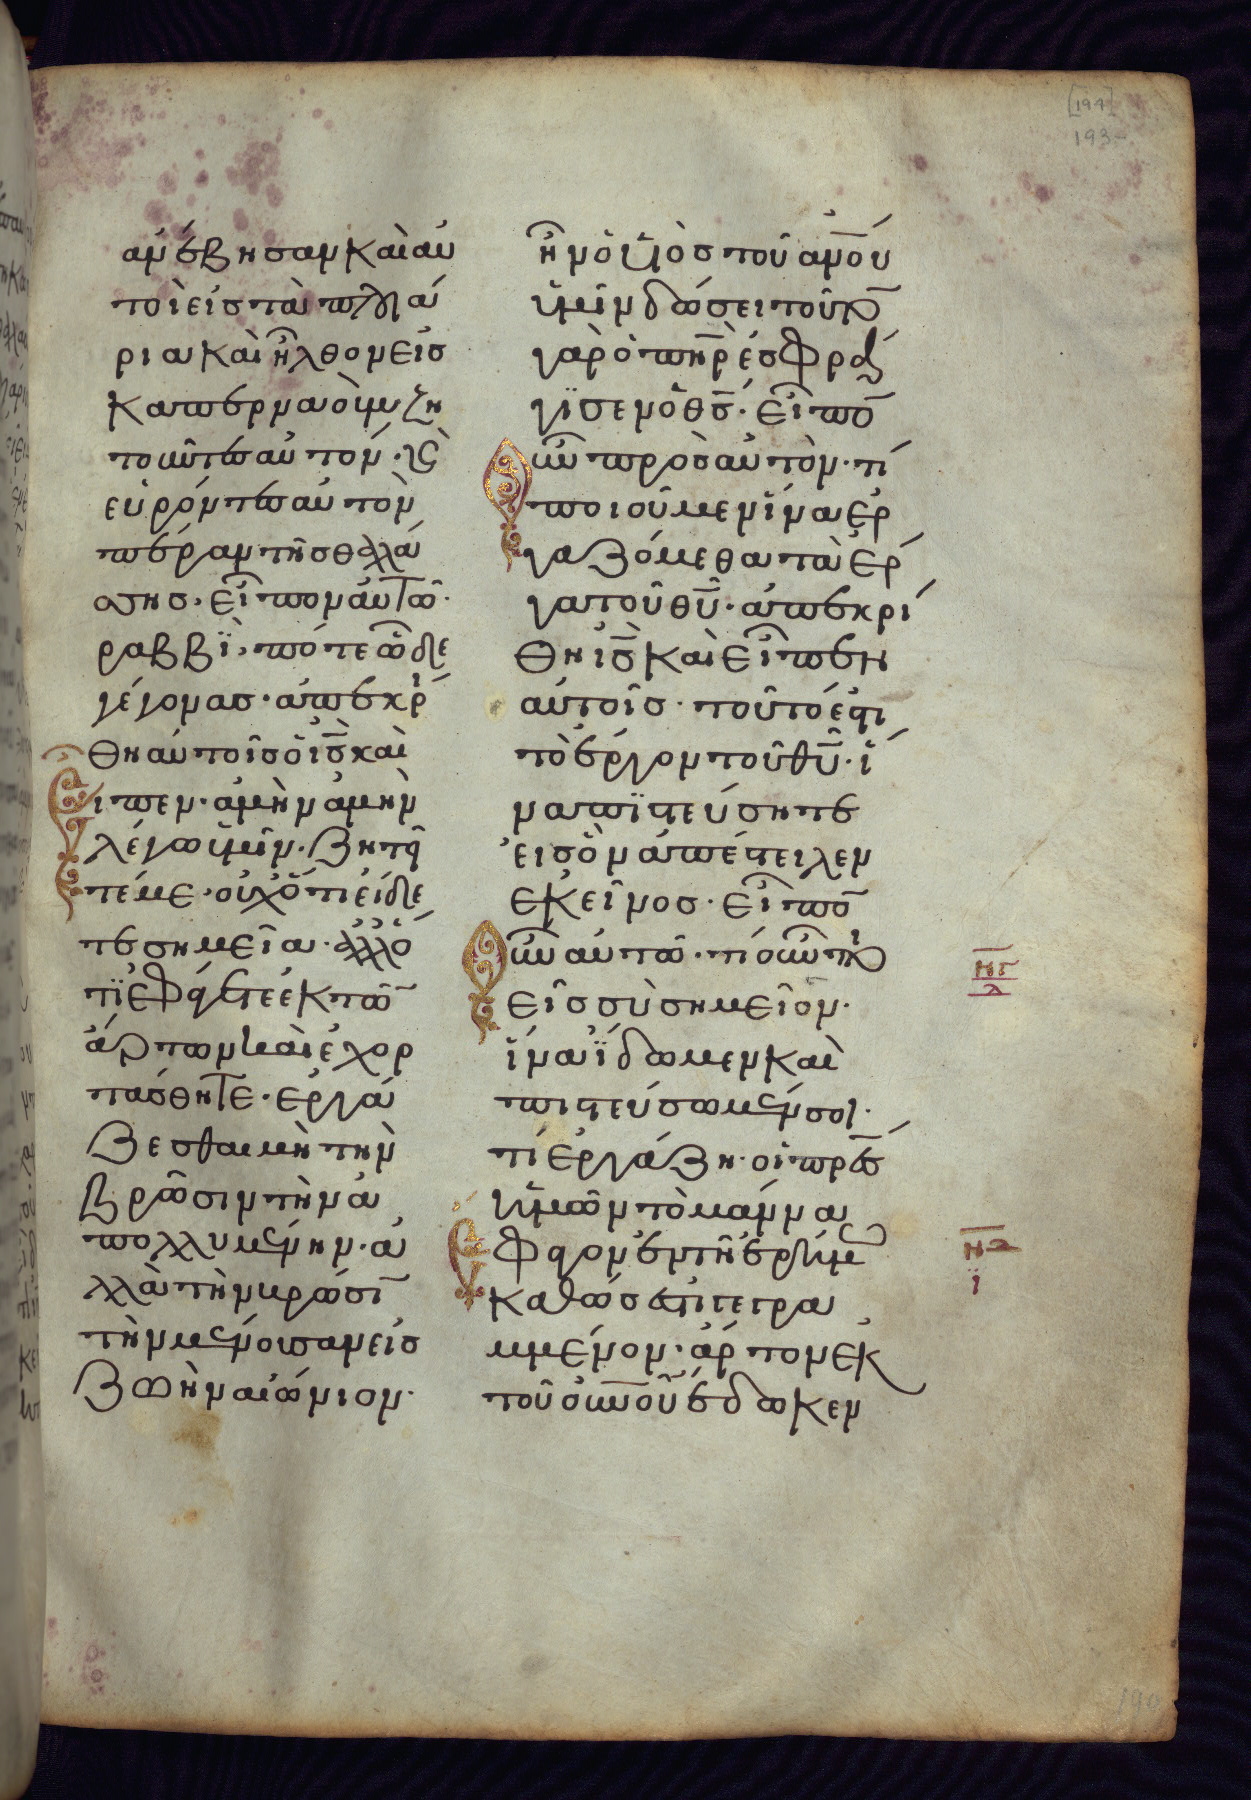 [194]
193
ανέβησαν καὶ αὐ
τοὶ εἰς τὰ πλοιά
ρια καὶ ἦλθον εἰς
Καπερναοὺμ ζη
τοῦντες αὐτόν· καὶ
εὑρόντες αὐτὸν
πέραν τῆς θαλά
σσης· εἶπον αὐτῶ·
ραββῒ· πότε ὧδε
γέγονας· ἀπεκρί
θη αὐτοῖς ὁ ις̅ καὶ
εἶπεν· ἀμὴν ἀμὴν
λέγω ὑμῖν· ζητεῖ
τέ με· οὐχ ὅτι εἴδε
τε σημεῖα· ἀλλ' ὅ
τι ἐφάγετε ἐκ τῶν
ἄρτων καὶ ἐχορ
τάσθητε· ἐργά
ζεσθαι μὴ τὴν
βρῶσιν τὴν ἀ
πολλυμένην· ἀ
λλὰ τὴν βρῶσιν
τὴν μένουσαν εἰς
ζωὴν αἰώνιον·
ἣν ὁ υἱὸς τοῦ ἀνο̅υ
ὑμῖν δώσει τοῦτον
γὰρ ὁ πηρ̅ ἐσφρά
γϊσεν ὁ θς̅· εἶπον
οὖν πρὸς αὐτὸν· τί
ποιοῦμεν ἵνα ἐρ
γαζόμεθα τὰ ἔρ
γα τοῦ θυ̅· ἀπεκρί
θη ις̅ καὶ εἶπεν
αὐτοῖς· τοῦτό ἐστι
τὸ ἔργον τοῦ θυ̅· ἵ
να πϊστεύσητε
εἰς ὃν ἀπέστειλεν
ἐκεῖνος· εἶπον
οὖν αὐτῶ· τί οὖν ποι
εῖς σὺ σημεῖον·
ἵνα ἴδωμεν καὶ
πιστεύσωμέν σοι·
τί ἐργάζη· οἱ πρε̅ς
ἡμῶν τὸ μάννα
ἔφαγον ἐν τῆ ἐρήμω
καθώς ἐστι γεγρα
μμένον· ἄρτον ἐκ
τοῦ οὐνοῦ ἔδωκεν
νγ
λ
να
ϊ
190